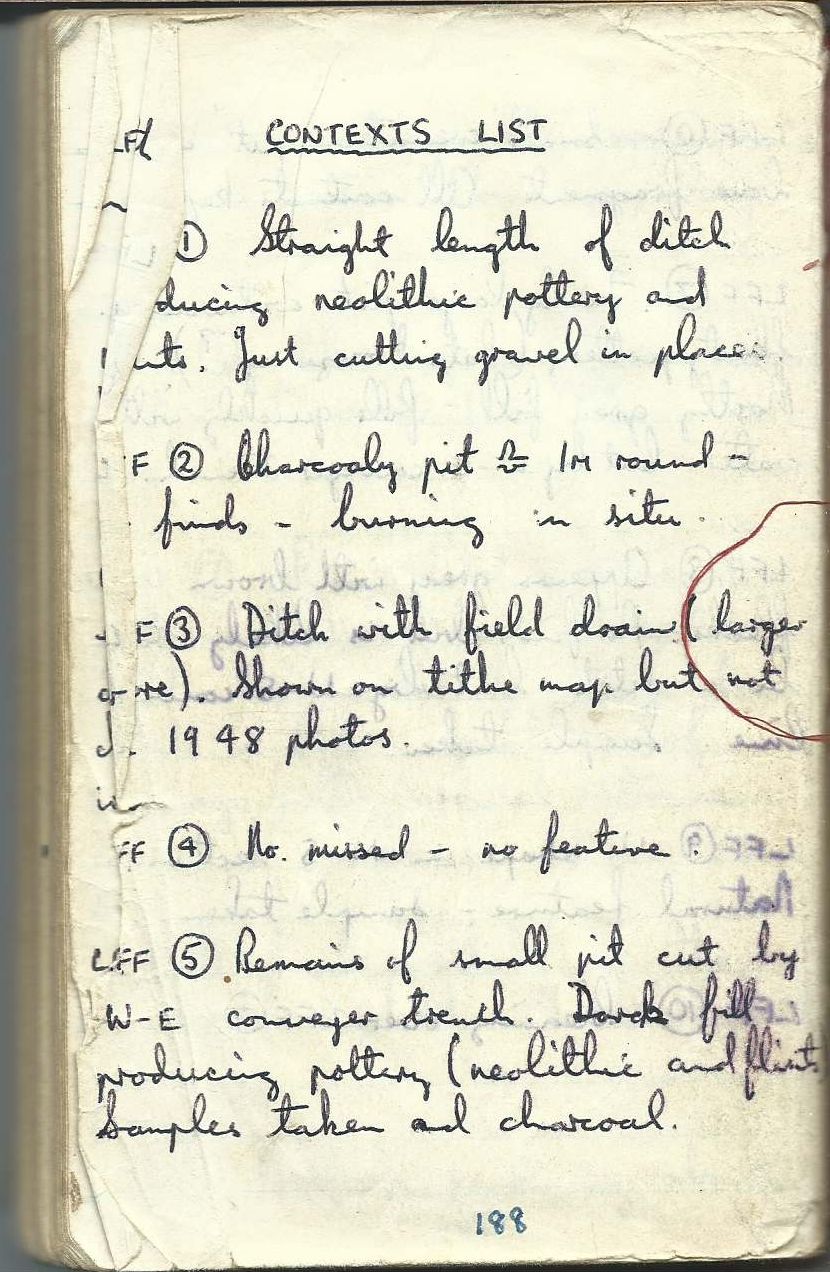 CONTEXTS LIST
① Straight length of ditch
ducing neolithic pottery and
nts. Just cutting gravel in places.
F ② Charcoaly pit ≈ 1m round -
finds - burning in situ.
F ③ Ditch with field drain (larger
re). Shown on tithe map but not
1948 photos.
FF ④ No. missed - no feature.
LFF ⑤ Remains of small pit cut by
W-E conveyer trench. Dark fill
producing pottery (neolithic and flints
Samples taken and charcoal.
188